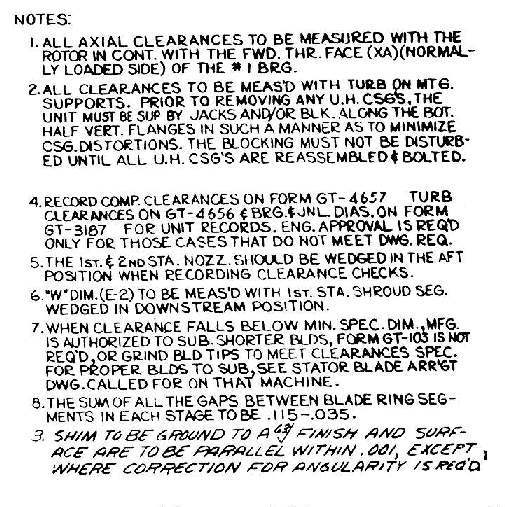 NOTES:
1. ALL AXIAL CLEARANCES TO BE MEASURED WITH THE
ROTOR IN CONT. WITH THE FWD. THR. FACE (XA)(NORMAL-
LY LOADED SIDE) OF THE #1 BRG.
2. ALL CLEARANCES TO BE MEAS'D WITH TURB ON MTG.
SUPPORTS. PRIOR TO REMOVING ANY U.H. CSG'S, THE
UNIT MUST BE SUP BY JACKS AND/OR BLK. ALONG THE BOT.
HALF VERT. FLANGES IN SUCH A MANNER AS TO MINIMIZE
CSG. DISTORTIONS. THE BLOCKING MUST NOT BE DISTURB-
ED UNTIL ALL U.H. CSG'S ARE REASSEMBLED & BOLTED.
4. RECORD COMP. CLEARANCES ON FORM GT-4657 TURB
CLEARANCES ON GT-4656 & BRG. & JNL. DIAS. ON FORM
GT-3187 FOR UNIT RECORDS. ENG. APPROVAL IS REQ'D
ONLY FOR THOSE CASES THAT DO NOT MEET DWG. REQ.
5. THE 1ST. & 2ND STA. NOZZ. SHOULD BE WEDGED IN THE AFT
POSITION WHEN RECORDING CLEARANCE CHECKS.
6. "W" DIM. (E-2) TO BE MEAS'D WITH 1ST. STA. SHROUD SEG.
WEDGED IN DOWNSTREAM POSITION.
7. WHEN CLEARANCE FALLS BELOW MIN. SPEC. DIM., MFG.
IS AUTHORIZED TO SUB. SHORTER BLDS, FORM GT-103 IS NOT
REQ'D, OR GRIND BLD TIPS TO MEET CLEARANCES SPEC.
FOR PROPER BLDS TO SUB, SEE STATOR BLADE ARR'GT
DWG. CALLED FOR ON THAT MACHINE.
8. THE SUM OF ALL THE GAPS BETWEEN BLADE RING SEG-
MENTS IN EACH STAGE TO BE .115-.035.
3. SHIM TO BE GROUND TO A 63 FINISH AND SURF-
ACE ARE TO BE PARALLEL WITHIN .001, EXCEPT,
WHERE CORRECTION FOR ANGULARITY IS REQ'D